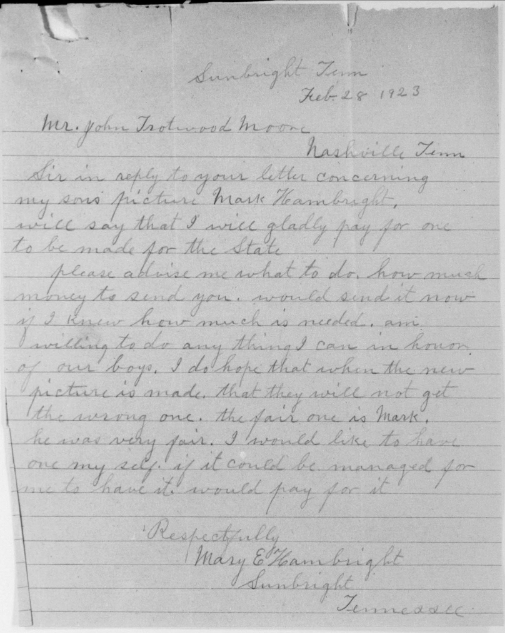 Sunbright Tenn
Feb. 28 1923
Mr. John Trotwood Moore
Nashville Tenn
Sir in reply to your letter concerning
my sons picture Mark Hambright,
will say that I will gladly pay for one
to be made for the State
please advise me what to do. how much
money to send you. would send it now
if I knew how much is needed. am
willing to do any thing I can in honor
of our boys. I do hope that when the new
picture is made. that they will not get
the wrong one. the fair one is Mark.
he was very fair. I would like to have
one my self. if it could be managed for
me to have it. would pay for it
Respectfully
Mary E Hambright
Sunbright
Tennessee